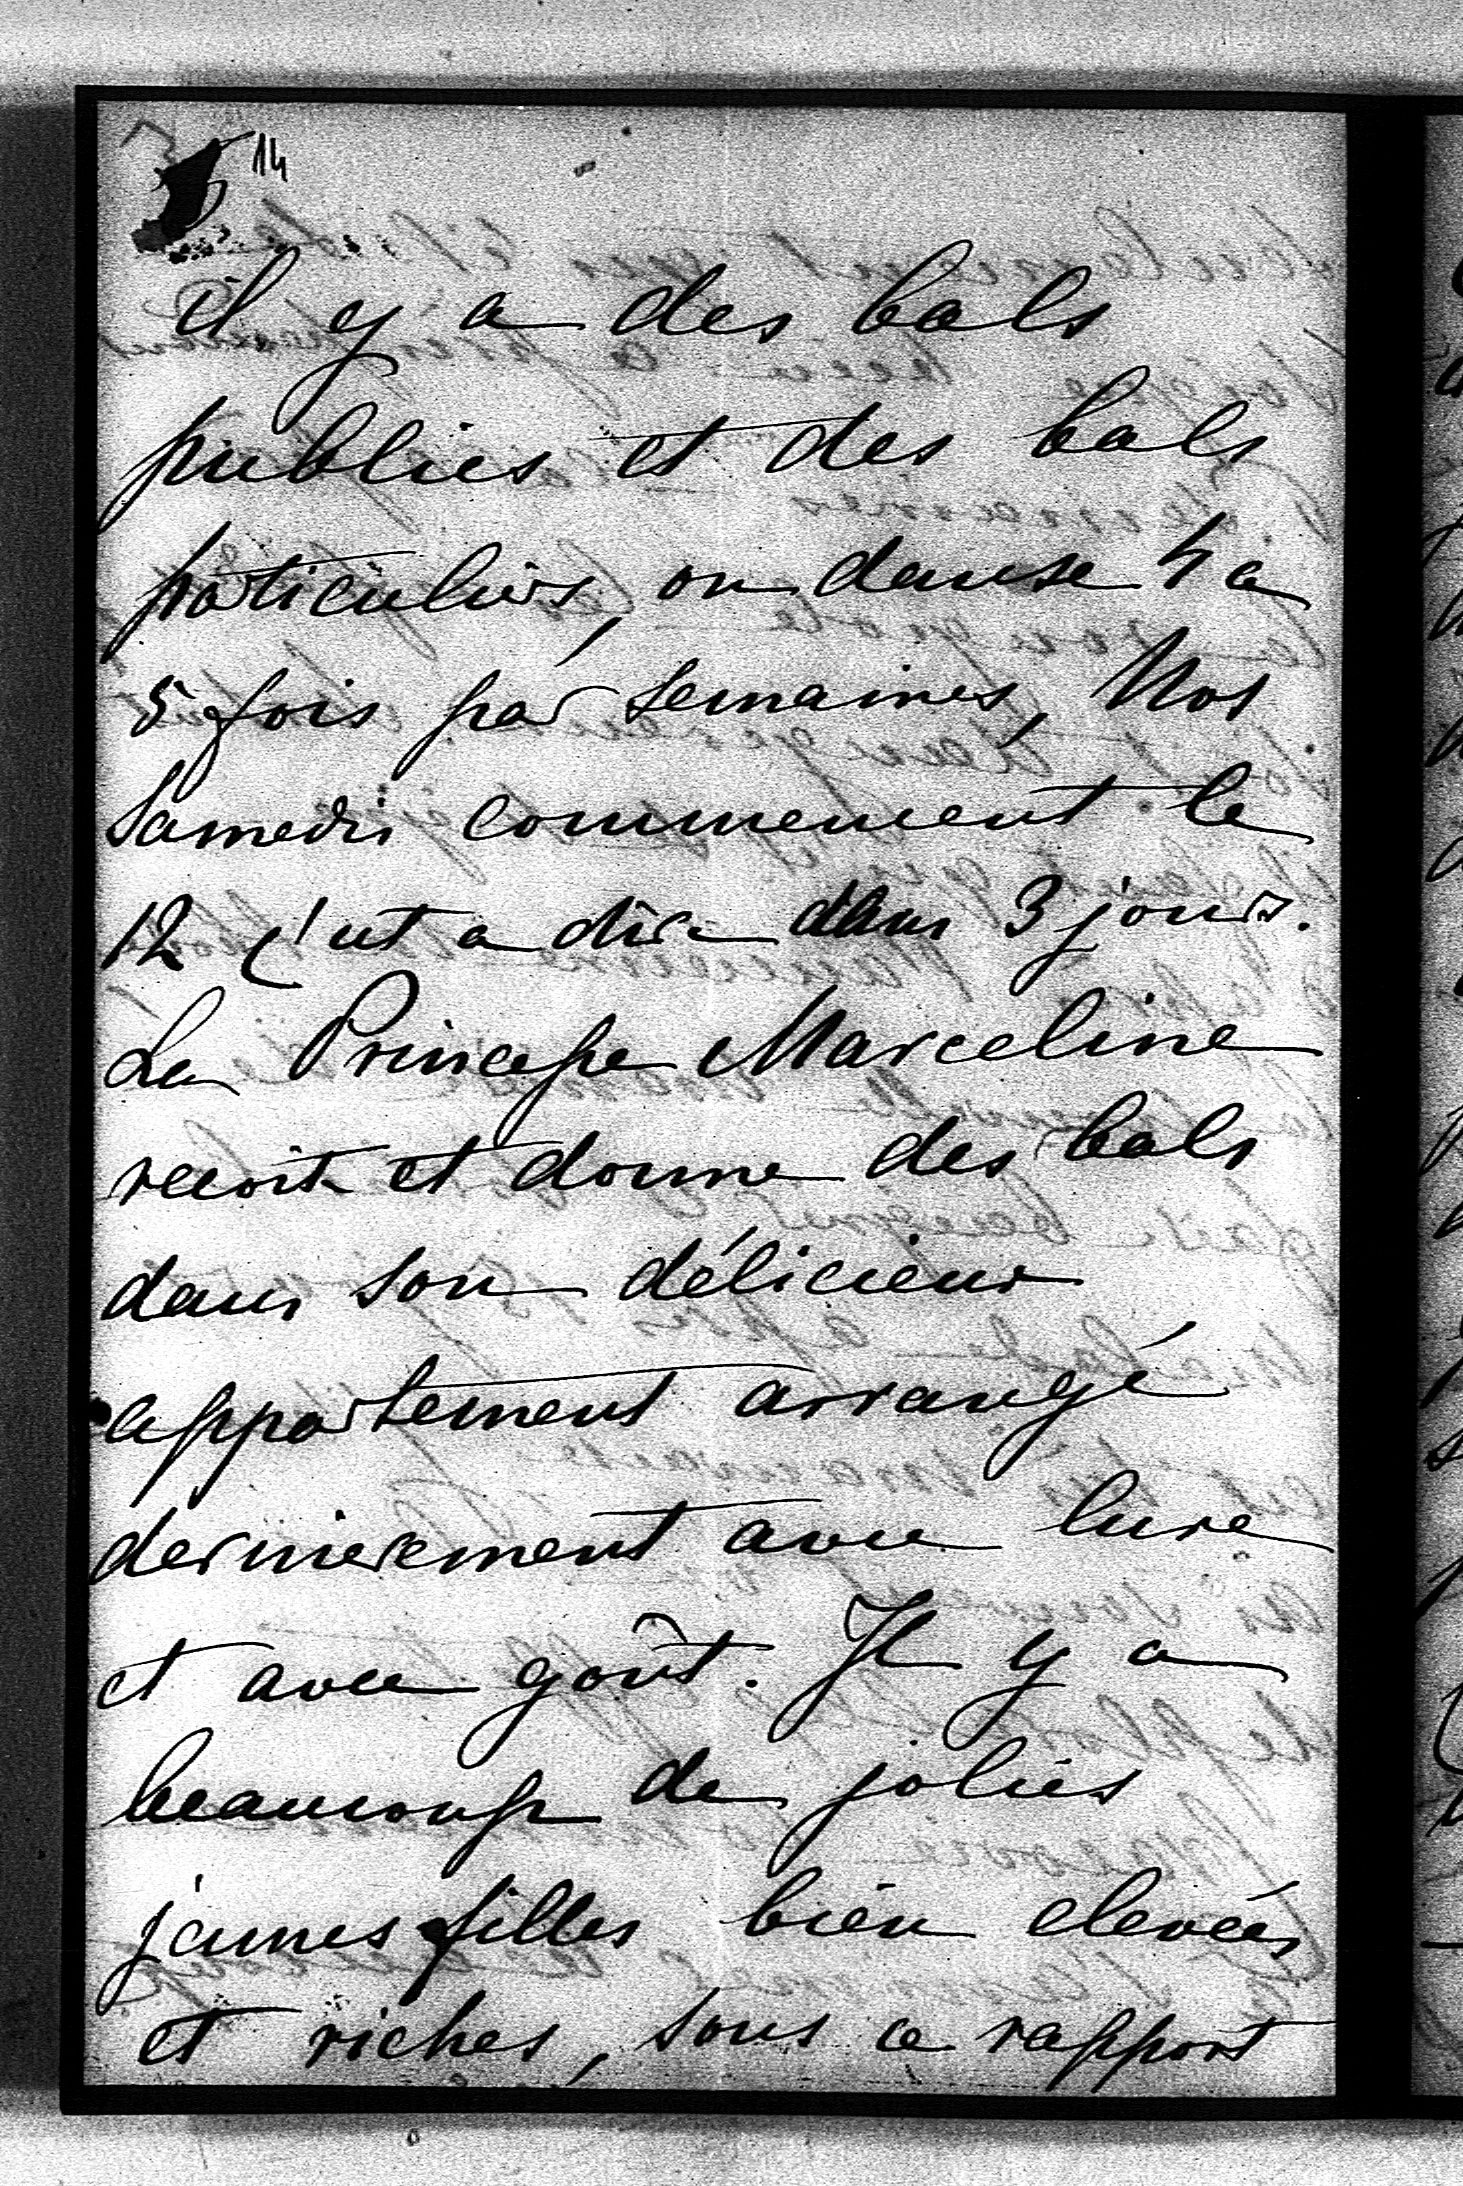 14
il y a des bals
publics et des bals
particuliers, on danse 4 a
5 fois par semaines, Nos
Samedis commencent le
12 c'est a dire dans 3 jours.
La Princesse Marceline
recoit et donne des bals
dans son délicieux
appartement arrangé
dernierement avec luxe
et avec goût. Il y a
beaucoup de jolies
jeunes filles bien elevées
et riches, sous ce rapport